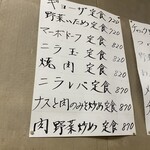 ギョーザ 定食 720
野菜いため 定食 720
マーボドーフ 定食 820
ニラ玉 定食 820
焼肉 定食 820
ニラレバ 定食 870
ナスと肉のみそ炒め 定食 870
肉野菜炒め 定食 870